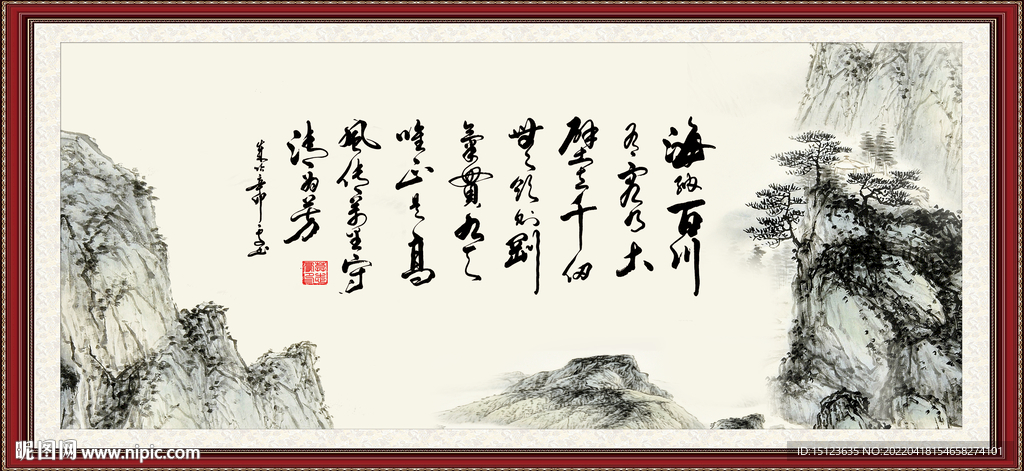 海纳百川
有容乃大
壁立千仞
无欲则刚
氣貫九天
唯正是高
風传萬里
守清为芳
昵图网 www.nipic.com
ID:15123635 NO:20220418154658274101